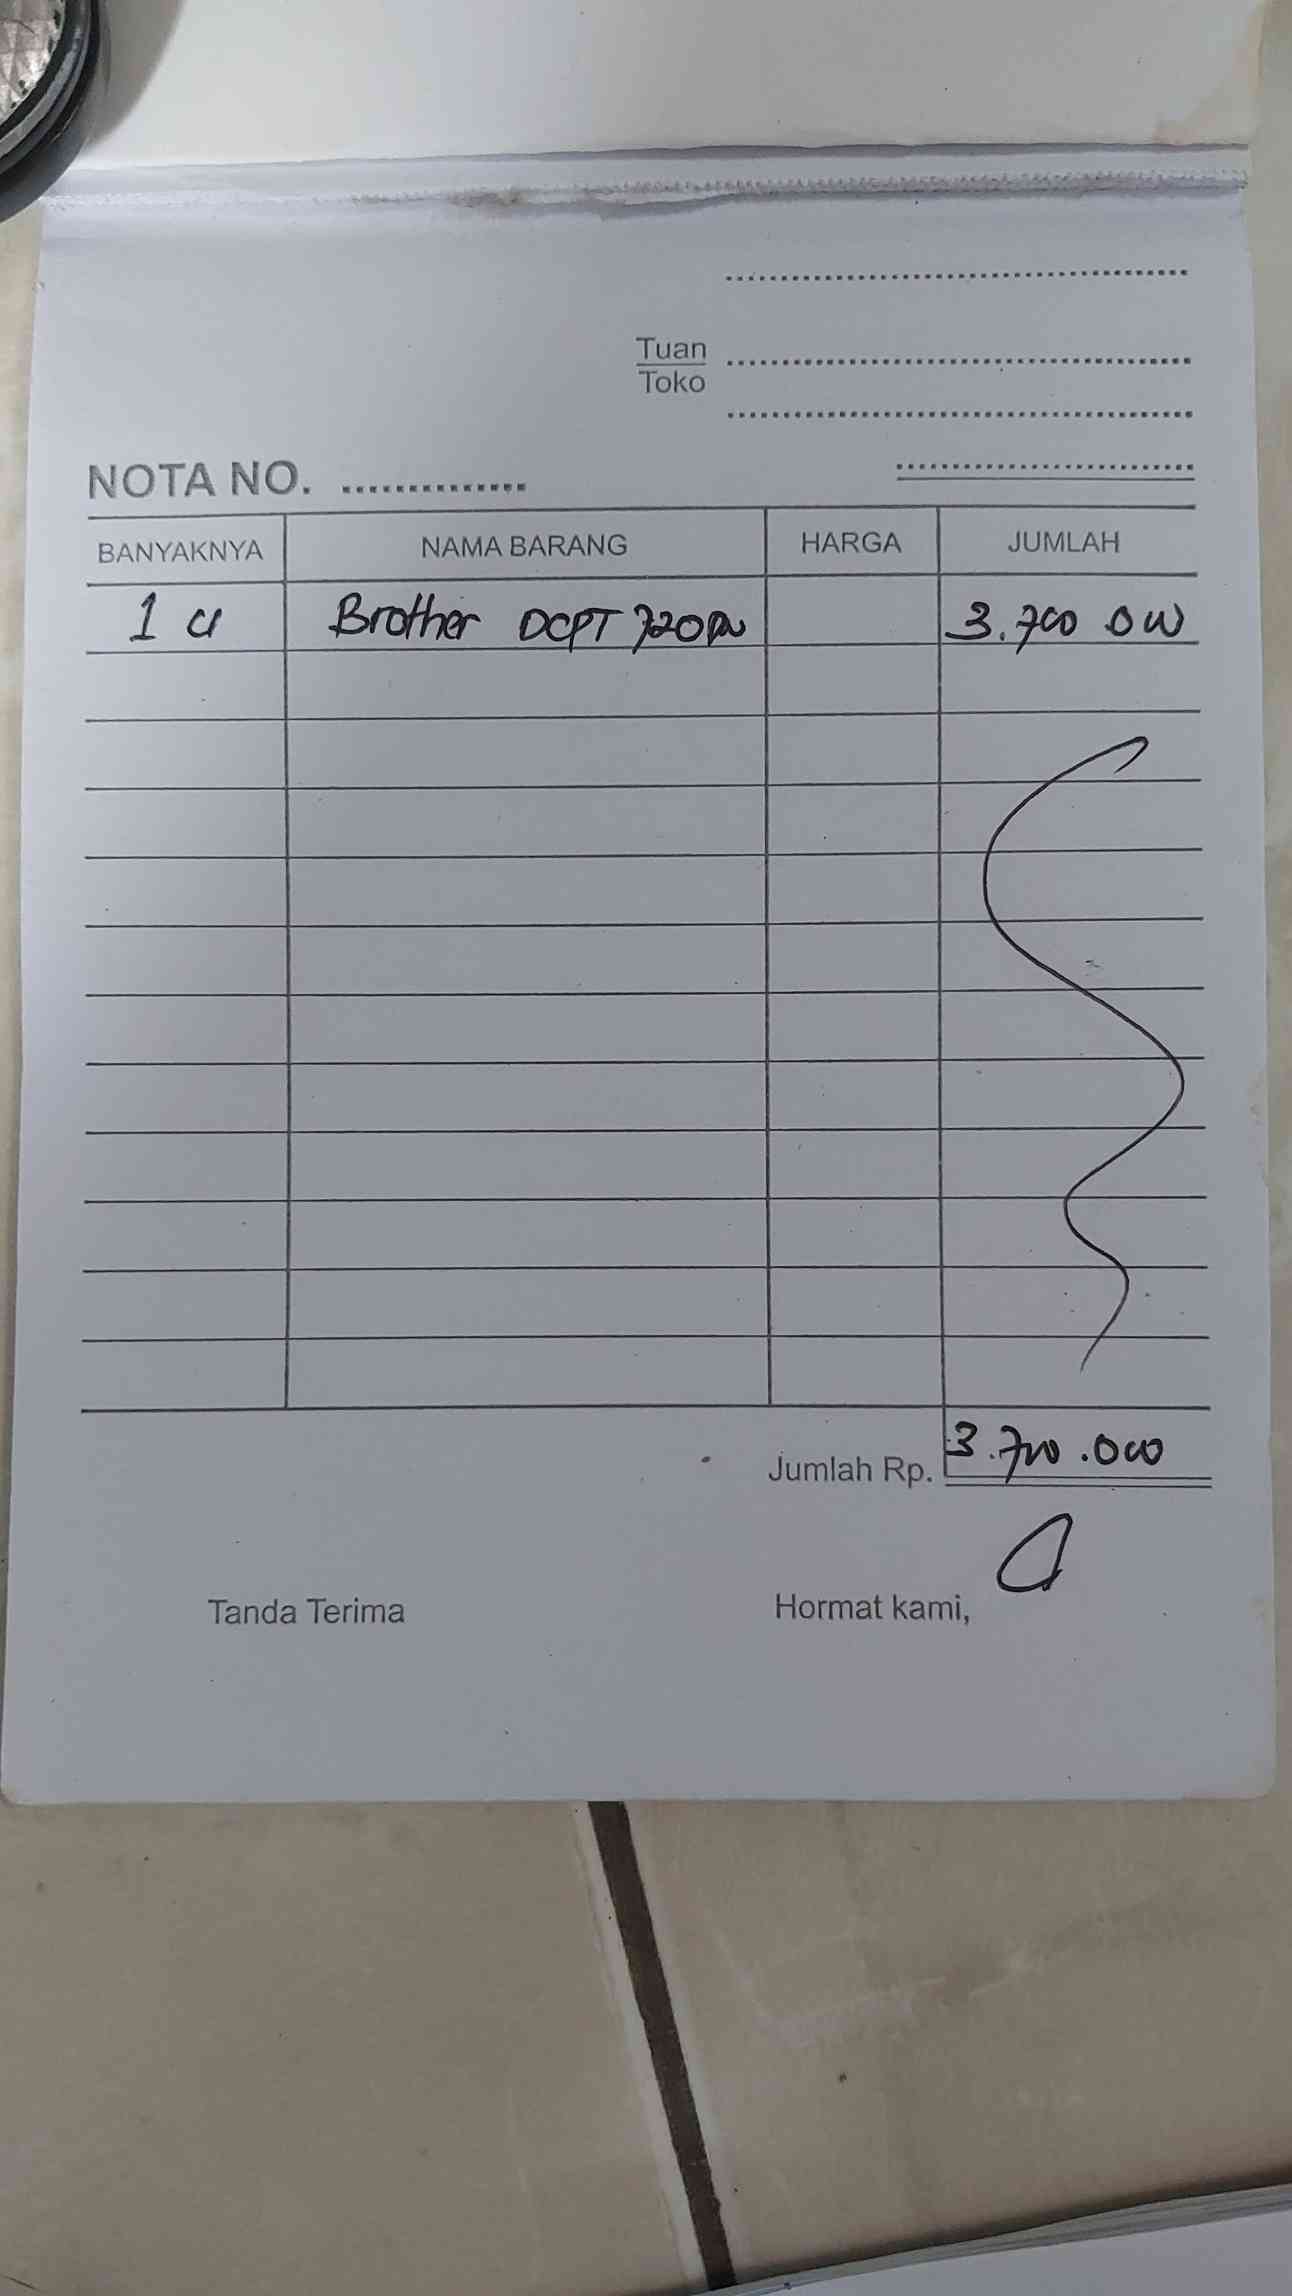 Tuan
Toko
NOTA NO.
BANYAKNYA NAMA BARANG HARGA JUMLAH
1 Brother DCPT 720DW 3.700 000
Jumlah Rp. 3.700.000
Tanda Terima Hormat kami,